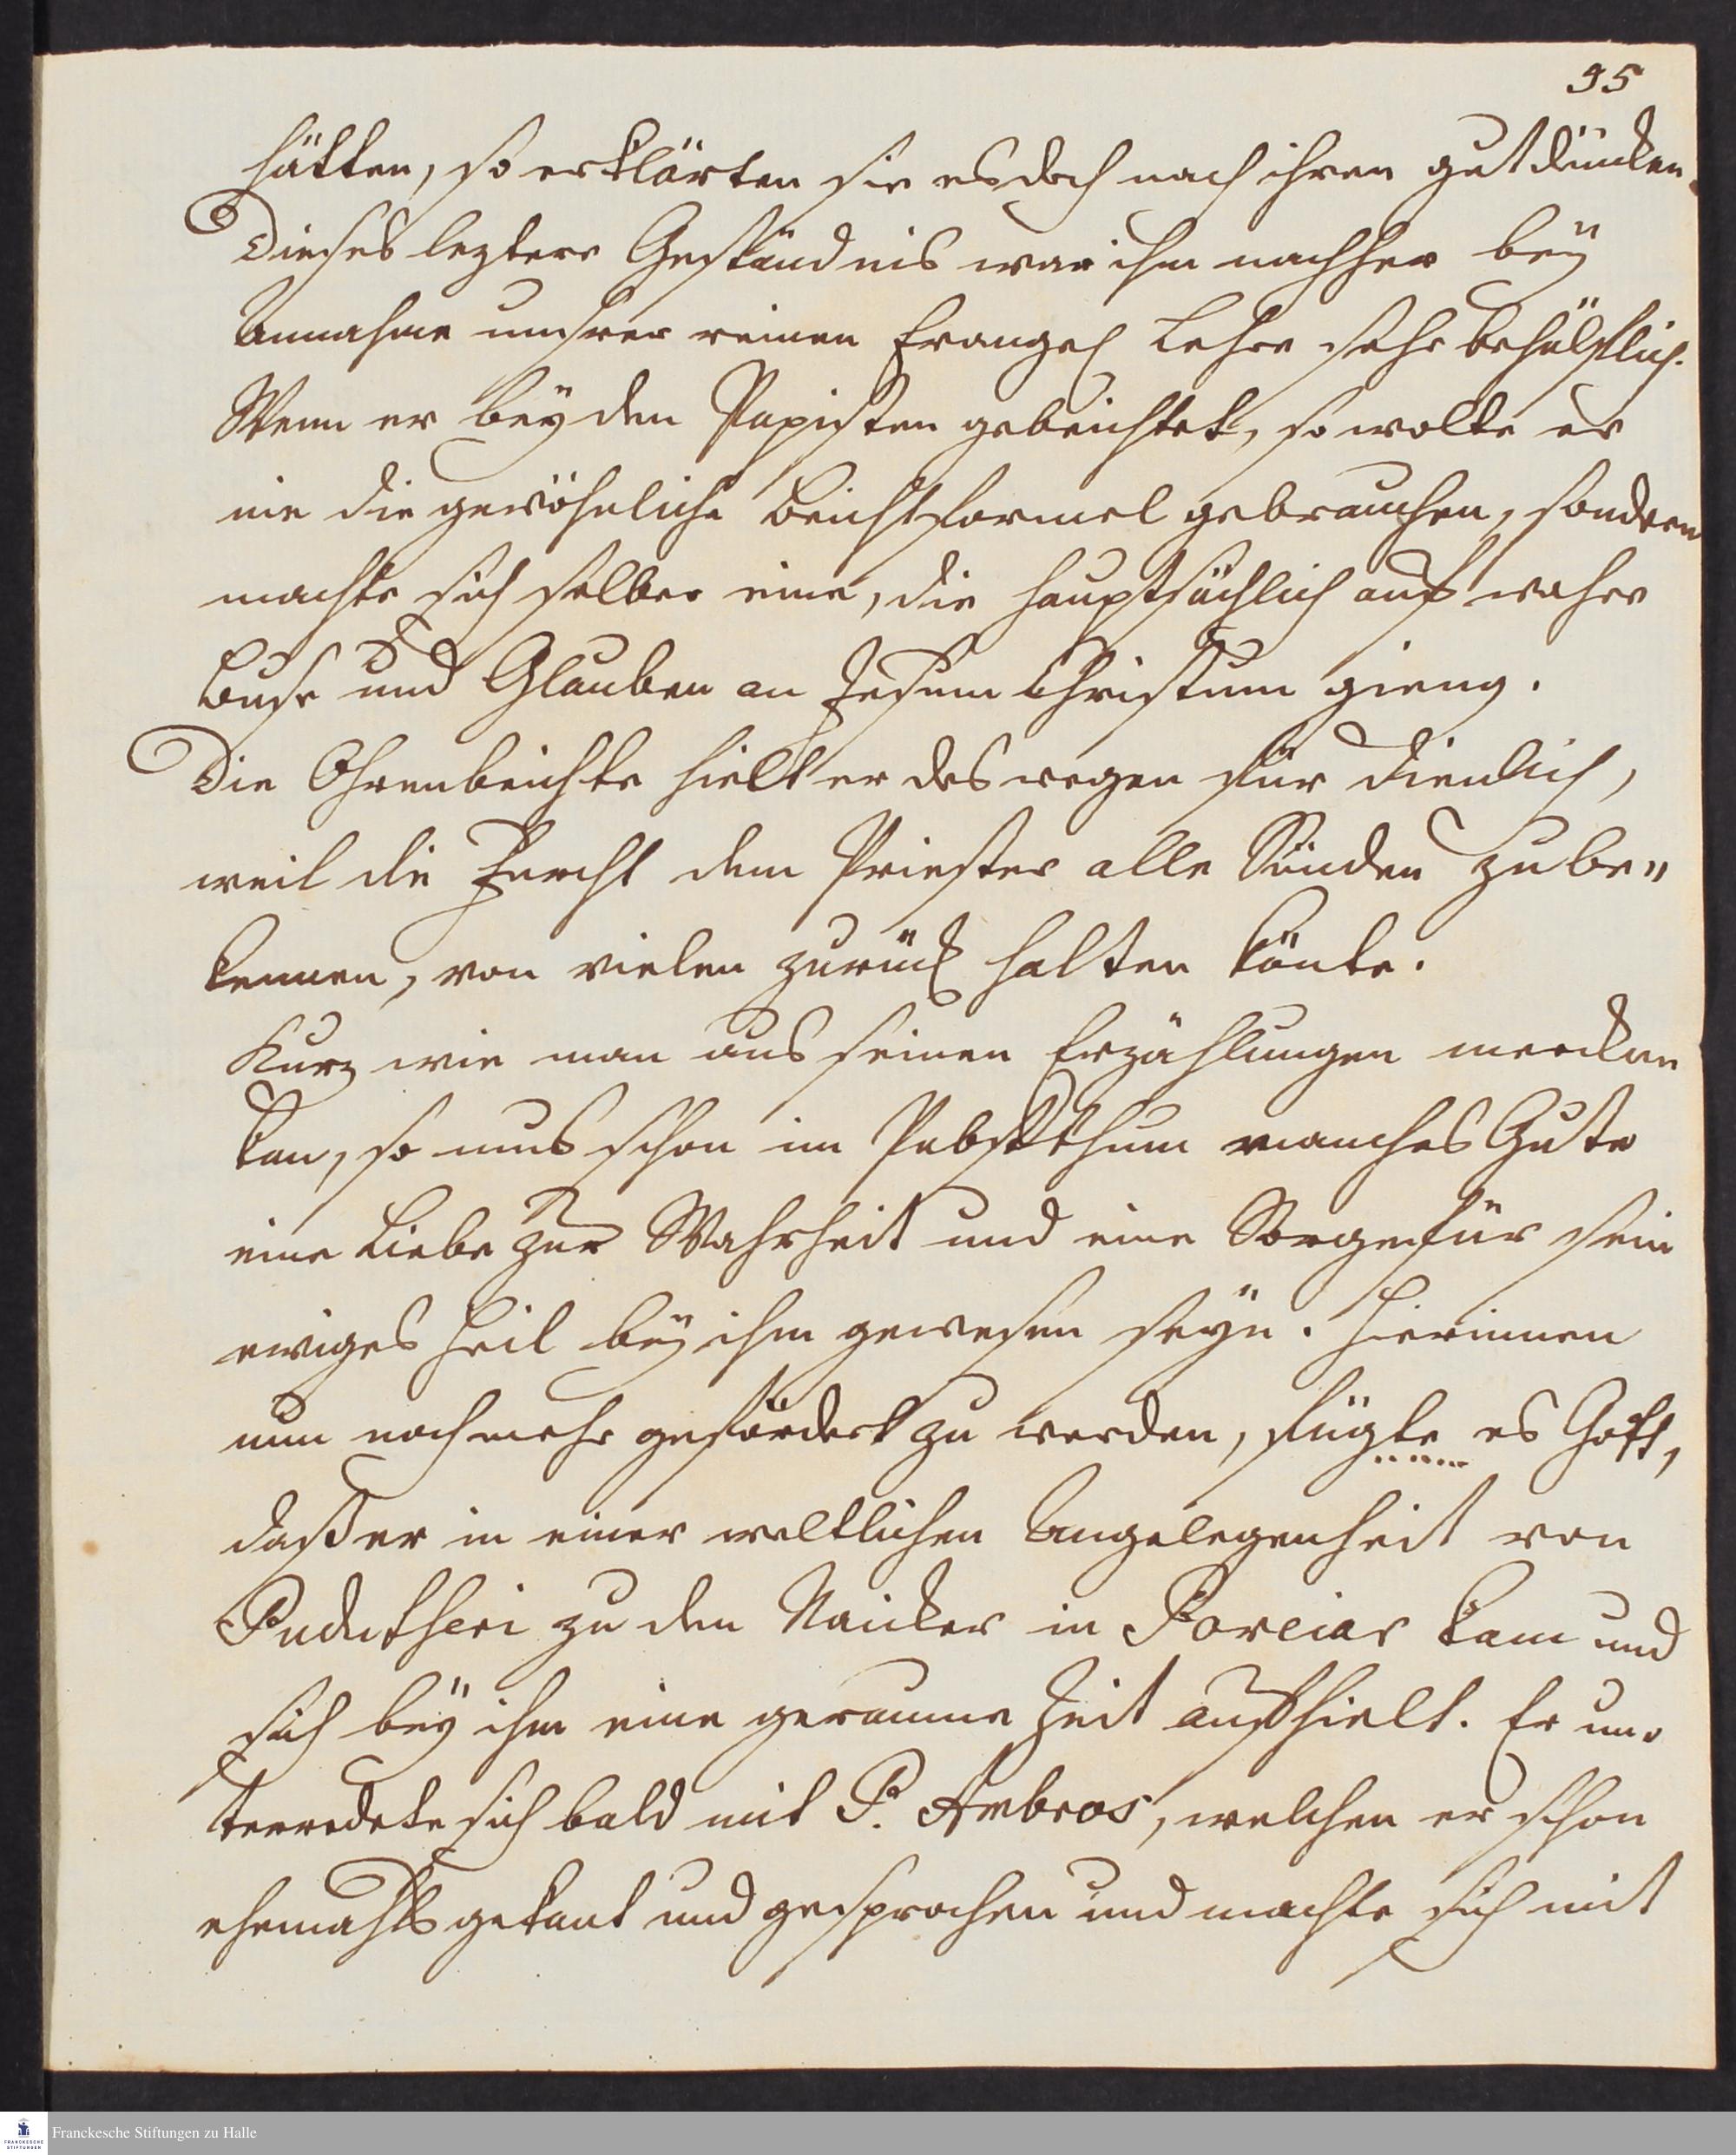 95
hätten, so erklärten sie es doch nach ihren gutdüncken.
Dieses leztere Geständnis war ihm nachher bey
Annahme unsrer reinen Evangel Lehre sehr behülflich.
Wenn er bey den Papisten gebeichtet, so wolte er
nie die gewöhnliche Beichtformel gebrauchen, sondern
machte sich selber eine, die hauptsächlich auf wahre
Buse und Glauben an Jesum Christum gieng.
Die Ohrenbeichte hielt er deswegen für dienlich,
weil die Furcht dem Priester alle Sünden zu be"
kennen, von vielen zurück halten könte.
Kurz wie man aus seinen Erzählungen mercken
kan, so mus schon im Pabstthum manches Gute
eine Liebe zur Wahrheit und eine Sorge für sein
ewiges Heil bey ihm gewesen seyn. Hierinnen
nun noch mehr gefördert zu werden, fügte es Gott,
daß er in einer weltlichen Angelegenheit von
Pudutscheri zu den Naicker in Poreiar kam und
sich bey ihm eine geraume Zeit aufhielt. Er un-
terredete sich bald mit P. Ambros, welchen er schon
ehemahls gekant und gesprochen und machte sich mit
Franckesche Stiftungen zu Halle
FRANCKESCHE
STIFTUNGEN